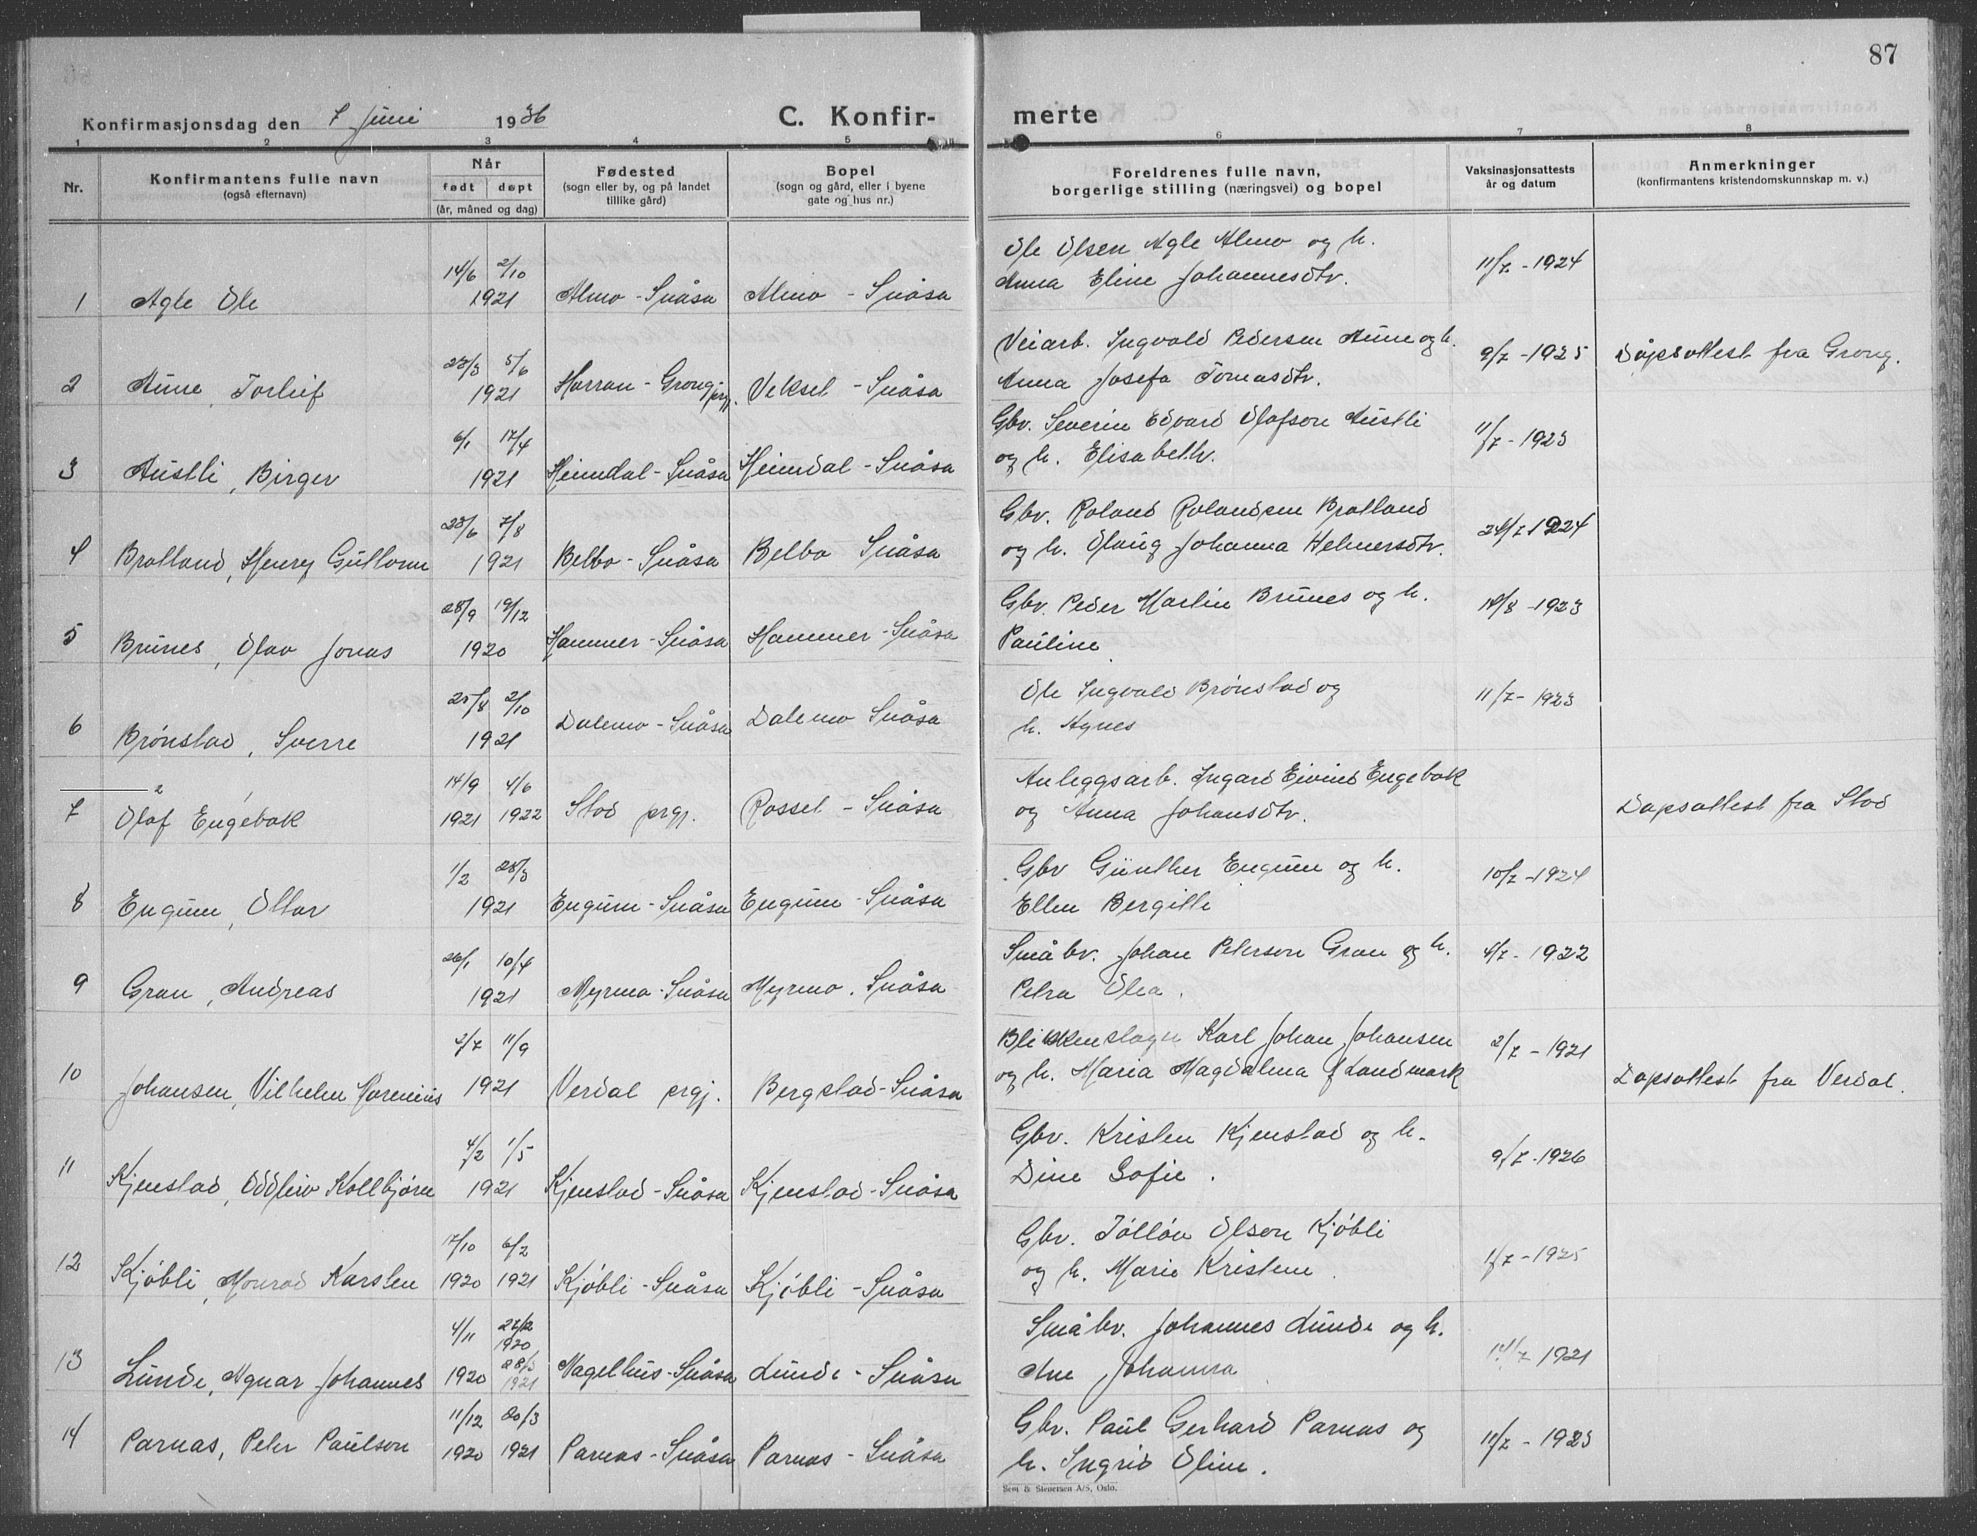 87
Konfirmasjonsdag den 7 Juni 1936 C. Konfir- merte
1 2 3 4 5 6 7 8
Nr. Konfirmantens fulle navn (også efternavn) Når født døpt (år, måned og dag) Fødested (sogn eller by, og på landet tillike gård) Bopel (sogn og gård, eller i byene gate og hus nr.) Foreldrenes fulle navn, borgerlige stilling (næringsvei) og bopel Vaksinasjonsattests år og datum Anmerkninger (konfirmantens kristendomskunnskap m. v.)
14/6 2/10 Ole Olsen Agle Almo og h. 11/7 - 1924
1 Agle Ole 1921 Almo - Snåsa Almo - Snåsa Anna Eline Johannesdtr.
23/3 5/6 Veiarb. Ingvald Pedersen Aune og h. 9/7 - 1925 Dåpsattest fra Grong.
2 Aune, Torleif 1921 Harran - Grong prgj. Veksel - Snåsa Anna Josefa Tomasdtr.
6/1 17/4 Gbv. Severin Edvard Olafson Austli 11/7 - 1923
3 Austli, Birger 1921 Heimdal - Snåsa Heimdal - Snåsa og h. Elisabeth.
23/6 7/8 Gbv. Roland Rolandsen Bratland 24/7 1924
4 Bratland, Henry Gullorm 1921 Belbo - Snåsa Belbo Snåsa og h. Olaug Johanna Helmersdtr.
28/9 19/12 Gbv. Peder Martin Brunes og h. 18/8 - 1923
5 Brunes, Olav Jonas 1920 Hammer - Snåsa Hammer - Snåsa Pauline
25/8 2/10 Ole Ingvald Brønstad og 11/7 - 1923
6 Brønstad, Sverre 1921 Dalemo - Snåsa Dalemo Snåsa h. Agnes
14/9 4/6 Anleggsarb. Ingard Eivind Engebak
7 Olaf Engebak 1921 1922 Stod prgj. Rossel - Snåsa og Anna Johansdtr. Dåpsattest fra Stod
1/2 28/3 Gbv Günther Engum og h. 10/7 - 1924
8 Engum, Ottar 1921 Engum - Snåsa Engum - Snåsa Ellen Bergitte
26/1 10/4 Småbv. Johan Peterson Gran og h. 4/7 - 1922
9 Gran, Andreas 1921 Myrmo - Snåsa Myrmo. Snåsa Petra Olea.
2/7 11/9 Blikkenslager Karl Johan Johansen 2/7 - 1921
10 Johansen, Vilhelm Marenius 1921 Verdal prgj. Bergstad - Snåsa og h. Maria Magdalena f Landmark Dåpsattest fra Verdal.
4/2 1/5 Gbv. Kristen Kjenstad og h. 9/7 - 1926
11 Kjenstad, Oddleiv Kollbjørn 1921 Kjenstad - Snåsa Kjenstad - Snåsa Dine Sofie.
17/10 6/2 Gbv. Tølløv Olson Kjøbli 1/7 - 1925
12 Kjøbli, Monrad Karsten 1920 1921 Kjøbli - Snåsa Kjøbli - Snåsa og h. Marie Kristine.
4/11 27/12 1920 Småbv. Johannes Lunde og h.
13 Lunde, Agnar Johannes 1920 28/3 1921 Nagelhus - Snåsa Lunde - Snåsa Ane Johanna 1921
11/12 20/3 Gbv. Paul Gerhard Parnas og 11/7 - 1923
14 Parnas, Peter Paulson 1920 1921 Parnas - Snåsa Parnas - Snåsa h. Ingrid Oline.
Sem & Stenersen A/S, Oslo.